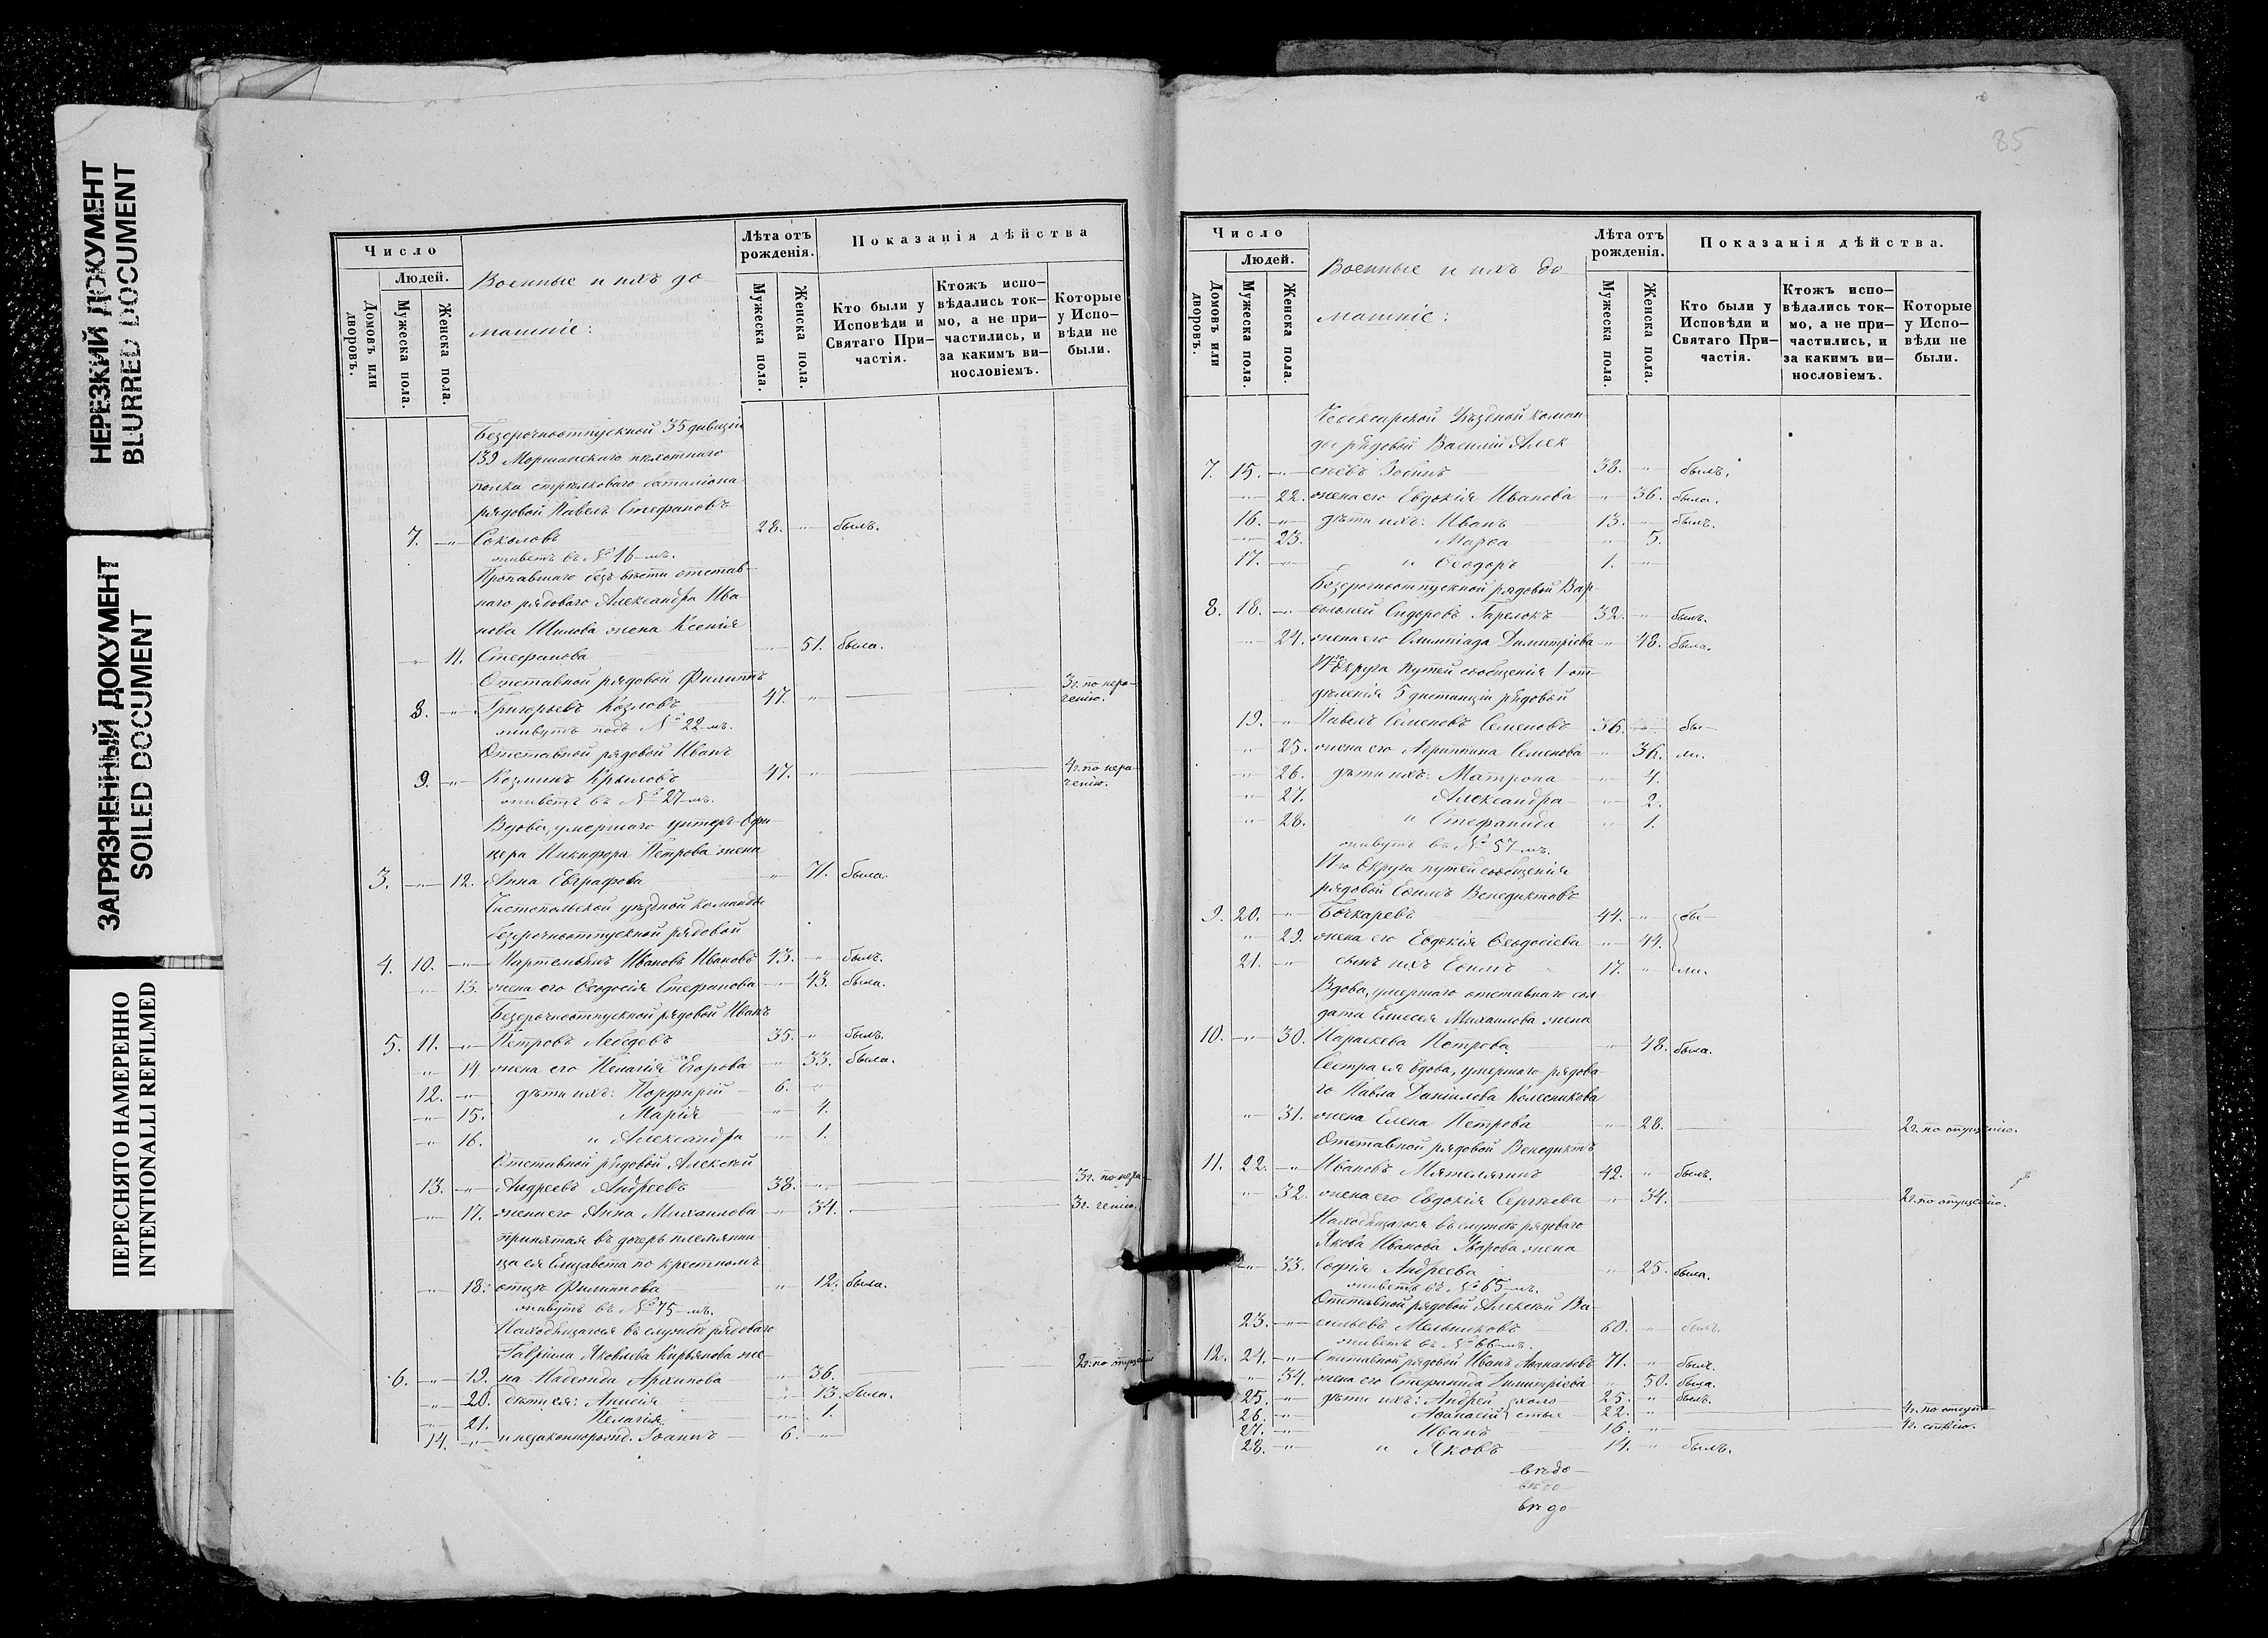 НЕРЕЗКИЙ ДОКУМЕНТ
BLURRED DOCUMENT
ЗАГРЯЗНЕННЫЙ ДОКУМЕНТ
SOILED DOCUMENT
ПЕРЕСНЯТО НАМЕРЕННО
INTENTIONALLI REFILMED
Число
Людей.
Домовъ или дворовъ.
Мужеска пола.
Женска пола.
Военные и ихъ до-
машніе:
Лѣта отъ рожденія.
Мужеска пола.
Женска пола.
Показанія дѣйства
Кто были у Исповѣди и Святаго При-частія.
Ктожъ испо-вѣдались ток-мо, а не при-частились, и за какимъ ви-нословіемъ.
Которые у Испо-вѣди не были.
Безсрочноотпускной 35 дивизіи
139 Моршанскаго пѣхотнаго
полка стрѣлковаго баталіона
рядовой Павелъ Стефановъ
7. -„- Соколовъ 28. -„- былъ.
живетъ въ № 16-мъ.
Пропавшаго безъ вѣсти отстав-
наго рядоваго Александра Ива-
нова Шилова жена Ксенія
-„- 11. Стефанова -„- 51. была.
Отставной рядовой Филиппъ
8. -„- Григорьевъ Козловъ 47. „ 3 г. по нера-
ченію.
живутъ подъ № 22-мъ.
Отставной рядовой Иванъ
9. -„- Козминъ Крыловъ 47. „ 4 г. по нера-
ченію.
живетъ въ № 27-мъ.
Вдова, умершаго унтеръ-Офи-
цера Никифора Петрова жена
3. -„- 12. Анна Евграфова „ 71. была.
Чистопольской уѣздной команды
безсрочноотпускной рядовой
4. 10. -„- Мартемьянъ Ивановъ Ивановъ 43. „ былъ.
-„- 13. жена его Ѳеодосія Стефанова -„- 43. была.
Безсрочноотпускной рядовой Иванъ
5. 11. -„- Петровъ Лебедевъ 35. „ былъ.
„ 14. жена его Пелагія Егорова „ 33. была.
12. -„- дѣти ихъ: Порфирій 6. „
-„- 15. Марія -„- 4.
-„- 16. „ Александра -„- 1.
Отставной рядовой Алексѣй
13. -„- Андреевъ Андреевъ 38. -„- 3 г. по нера-
-„- 17. жена его Анна Михаилова „ 34. 3 г. ченію.
принятая въ дочерь племянни-
ца ея Елизавета по крестномъ
-„- 18. отцѣ Филиппова „ 12. была.
живутъ въ № 75-мъ.
Находящагося въ службѣ рядоваго
Гавріила Яковлева Кирьянова же-
6. -„- 19. на Надежда Архипова „ 36. 2 г. по опущенію
„ 20. дѣти ея: Анисія „ 13. была.
-„- 21. Пелагія -„- 1.
14. -„- и незаконнорожд. Іоаннъ 6. -„-
85
Число
Людей.
Домовъ или дворовъ.
Мужеска пола.
Женска пола.
Военные и ихъ до-
машніе:
Лѣта отъ рожденія.
Мужеска пола.
Женска пола.
Показанія дѣйства.
Кто были у Исповѣди и Святаго При-частія.
Ктожъ испо-вѣдались ток-мо, а не при-частились, и за какимъ ви-нословіемъ.
Которые у Испо-вѣди не были.
Чебоксарской Уѣздной коман-
ды рядовой Василій Алек-
7. 15. -„- сѣевъ Зосинъ 38. „ былъ.
-„- 22. жена его Евдокія Иванова -„- 36. была.
16. -„- дѣти ихъ: Иванъ 13. -„- былъ.
-„- 23. Марѳа -„- 5.
17. -„- „ Ѳеодоръ 1. -„-
Безсрочноотпускной рядовой Вар-
8. 18. -„- ѳоломей Сидоровъ Горелокъ 32. „ былъ.
-„- 24. жена его Олимпіада Димитріева -„- 48. была.
Округа путей сообщенія 1 от-
дѣленія 5 дистанціи рядовой
19. -„- Павелъ Семеновъ Семеновъ 36. -„- бы-
„ 25. жена его Агриппина Семенова „ 36. ли.
„ 26. дѣти ихъ: Матрона -„- 4.
„ 27. Александра -„- 2.
„ 28. „ Стефанида „ 1.
живутъ въ № 57-мъ.
Округа путей сообщенія
рядовой Ефимъ Венедиктовъ
9. 20. -„- Бочкаревъ 44. -„- бы-
„ 29. жена его Евдокія Ѳеодосіева -„- 44.
21. „ сынъ ихъ Ефимъ 17. „ ли.
Вдова, умершаго отставнаго сол-
дата Елисея Михаилова жена
10. -„- 30. Параскева Петрова „ 48. была.
Сестра ея вдова, умершаго рядова-
го Павла Даніилова Колесникова
-„- 31. жена Елена Петрова „ 28. 2 г. по опущенію.
Отставной рядовой Венедиктъ
11. 22. -„- Ивановъ Мятелягинъ 42. „ былъ.
-„- 32. жена его Евдокія Сергѣева „ 34. 2 г. по опущенію.
Находящагося въ службѣ рядоваго
Якова Иванова Уварова жена
-„- 33. Софія Андреева „ 25. была.
живетъ въ № 65-мъ.
Отставной рядовой Алексѣй Ва-
23. -„- сильевъ Мельниковъ 60. „ былъ.
живетъ въ № 66-мъ.
12. 24. -„- Отставной рядовой Иванъ Аѳанасьевъ 71. „ былъ.
„ 34. жена его Стефанида Димитріева „ 50. была.
25. „ дѣти ихъ: Андрей холо- 25. „ былъ.
26. „ Аѳанасій стые 22. „ 4 г. по опуще-
27. -„- Иванъ 16. „ 4 г.
28. -„- „ Яковъ 14. „ былъ.